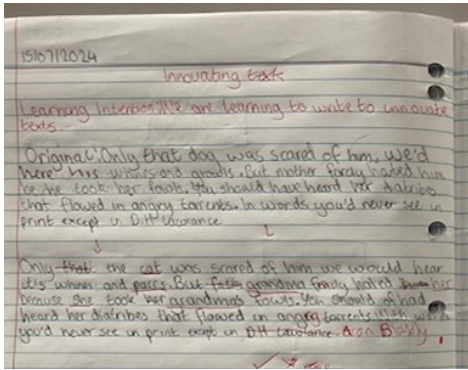 15/07/2024
Innovating texts
Learning Intention: We are learning to write to innovate
texts
Original: Only that dog was scared of him, we'd
here his whines and growls. But mother fordy hated him
he took her fowls. You should have heard her diatribes
that flowed in angry torrents. In words you'd never see in
print except in D.H Lawrance
Only that the cat was scared of him we would hear
it's whines and purrs. But grandma fordy hated her
because she took her grandmas fowls. You should of had
heard her diatribes that flowed in angry torrents. With words
you'd never see in print except in D.H Lawrance.